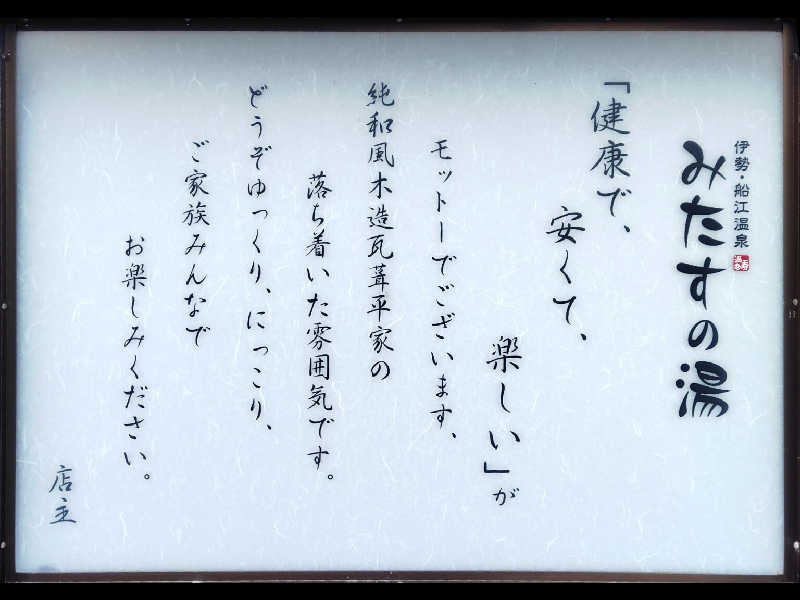 伊勢・船江温泉
みたすの湯
「健康で、
安くて、
楽しい」が
モットーでございます、
純和風木造瓦葺平家の
落ち着いた雰囲気です。
どうぞゆっくり、にっこり、
ご家族みんなで
お楽しみください。
店主